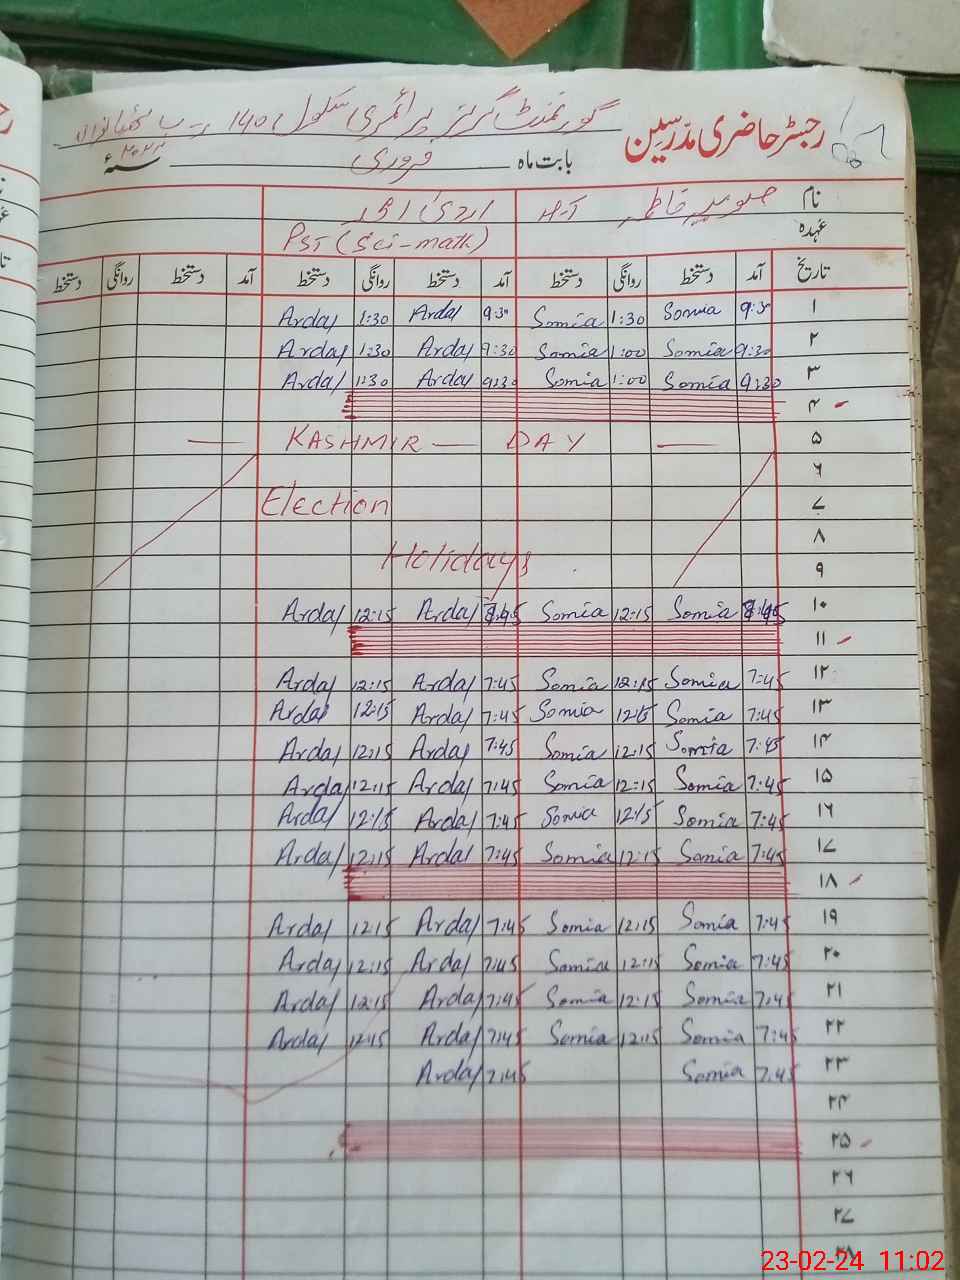 رجسٹر حاضری مدرسین
گورنمنٹ گرلز پرائمری سکول 140 ر-ب
بابت ماہ فروری ۲۰۲۴ء
نام صوبیہ فاطمہ
عہدہ H-T PST (Sci-math)
تاریخ آمد دستخط روانگی دستخط آمد دستخط روانگی دستخط آمد دستخط روانگی دستخط
۱ 9:30 Somia 1:30 Somia 9:30 Arda 1:30 Arda
۲ 9:30 Somia 1:00 Somia 9:30 Arda 1:30 Arda
۳ 9:30 Somia 1:00 Somia 9:30 Arda 1:30 Arda
۴
۵ KASHMIR — DAY
۶
۷ Election
۸
۹ Holidays
۱۰ Somia 12:15 Somia Arda 12:15 Arda
۱۱
۱۲ 7:45 Somia 12:15 Somia 7:45 Arda 12:15 Arda
۱۳ 7:45 Somia 12:15 Somia 7:45 Arda 12:15 Arda
۱۴ 7:45 Somia 12:15 Somia 7:45 Arda 12:15 Arda
۱۵ 7:45 Somia 12:15 Somia 7:45 Arda 12:15 Arda
۱۶ 7:45 Somia 12:15 Somia 7:45 Arda 12:15 Arda
۱۷ 7:45 Somia 12:15 Somia 7:45 Arda 12:15 Arda
۱۸
۱۹ 7:45 Somia 12:15 Somia 7:45 Arda 12:15 Arda
۲۰ 7:45 Somia 12:15 Somia 7:45 Arda 12:15 Arda
۲۱ 7:45 Somia 12:15 Somia 7:45 Arda 12:15 Arda
۲۲ 7:45 Somia 12:15 Somia 7:45 Arda 12:15 Arda
۲۳ 7:45 Somia 7:45 Arda
۲۴
۲۵
۲۶
۲۷
۲۸
23-02-24 11:02